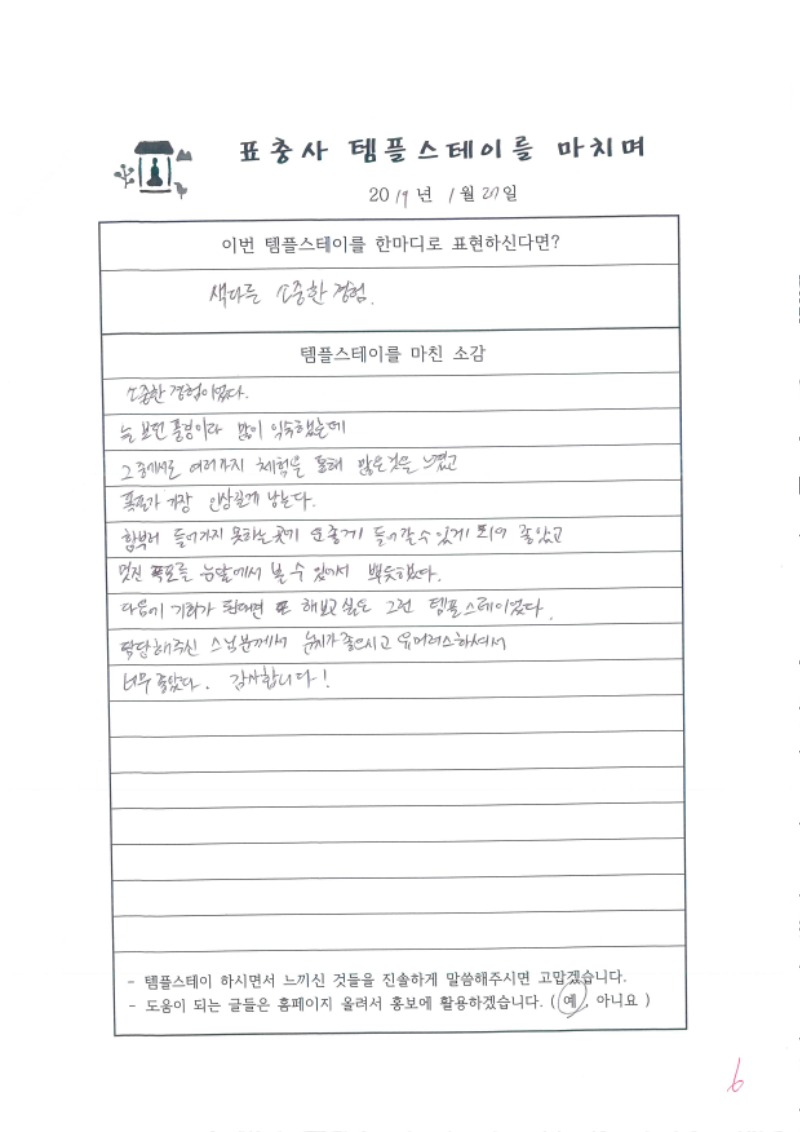 표충사 템플스테이를 마치며
2019년 1월 27일
이번 템플스테이를 한마디로 표현하신다면?
색다른 소중한 경험.
템플스테이를 마친 소감
소중한 경험이었다.
늘 보던 풍경이라 많이 익숙했는데
그 중에서도 여러가지 체험을 통해 많은것을 느꼈고
폭포가 가장 인상깊게 남는다.
함부러 들어가지 못하는곳에 운좋게 들어갈수 있게 되어 좋았고
멋진 폭포를 눈앞에서 볼 수 있어서 뿌듯했다.
다음에 기회가 된다면 또 해보고 싶은 그런 템플스테이였다.
담당해주신 스님분께서 눈치가 좋으시고 유머러스하셔서
너무 좋았다. 감사합니다!
- 템플스테이 하시면서 느끼신 것들을 진솔하게 말씀해주시면 고맙겠습니다.
- 도움이 되는 글들은 홈페이지 올려서 홍보에 활용하겠습니다. ( 예, 아니요 )
6